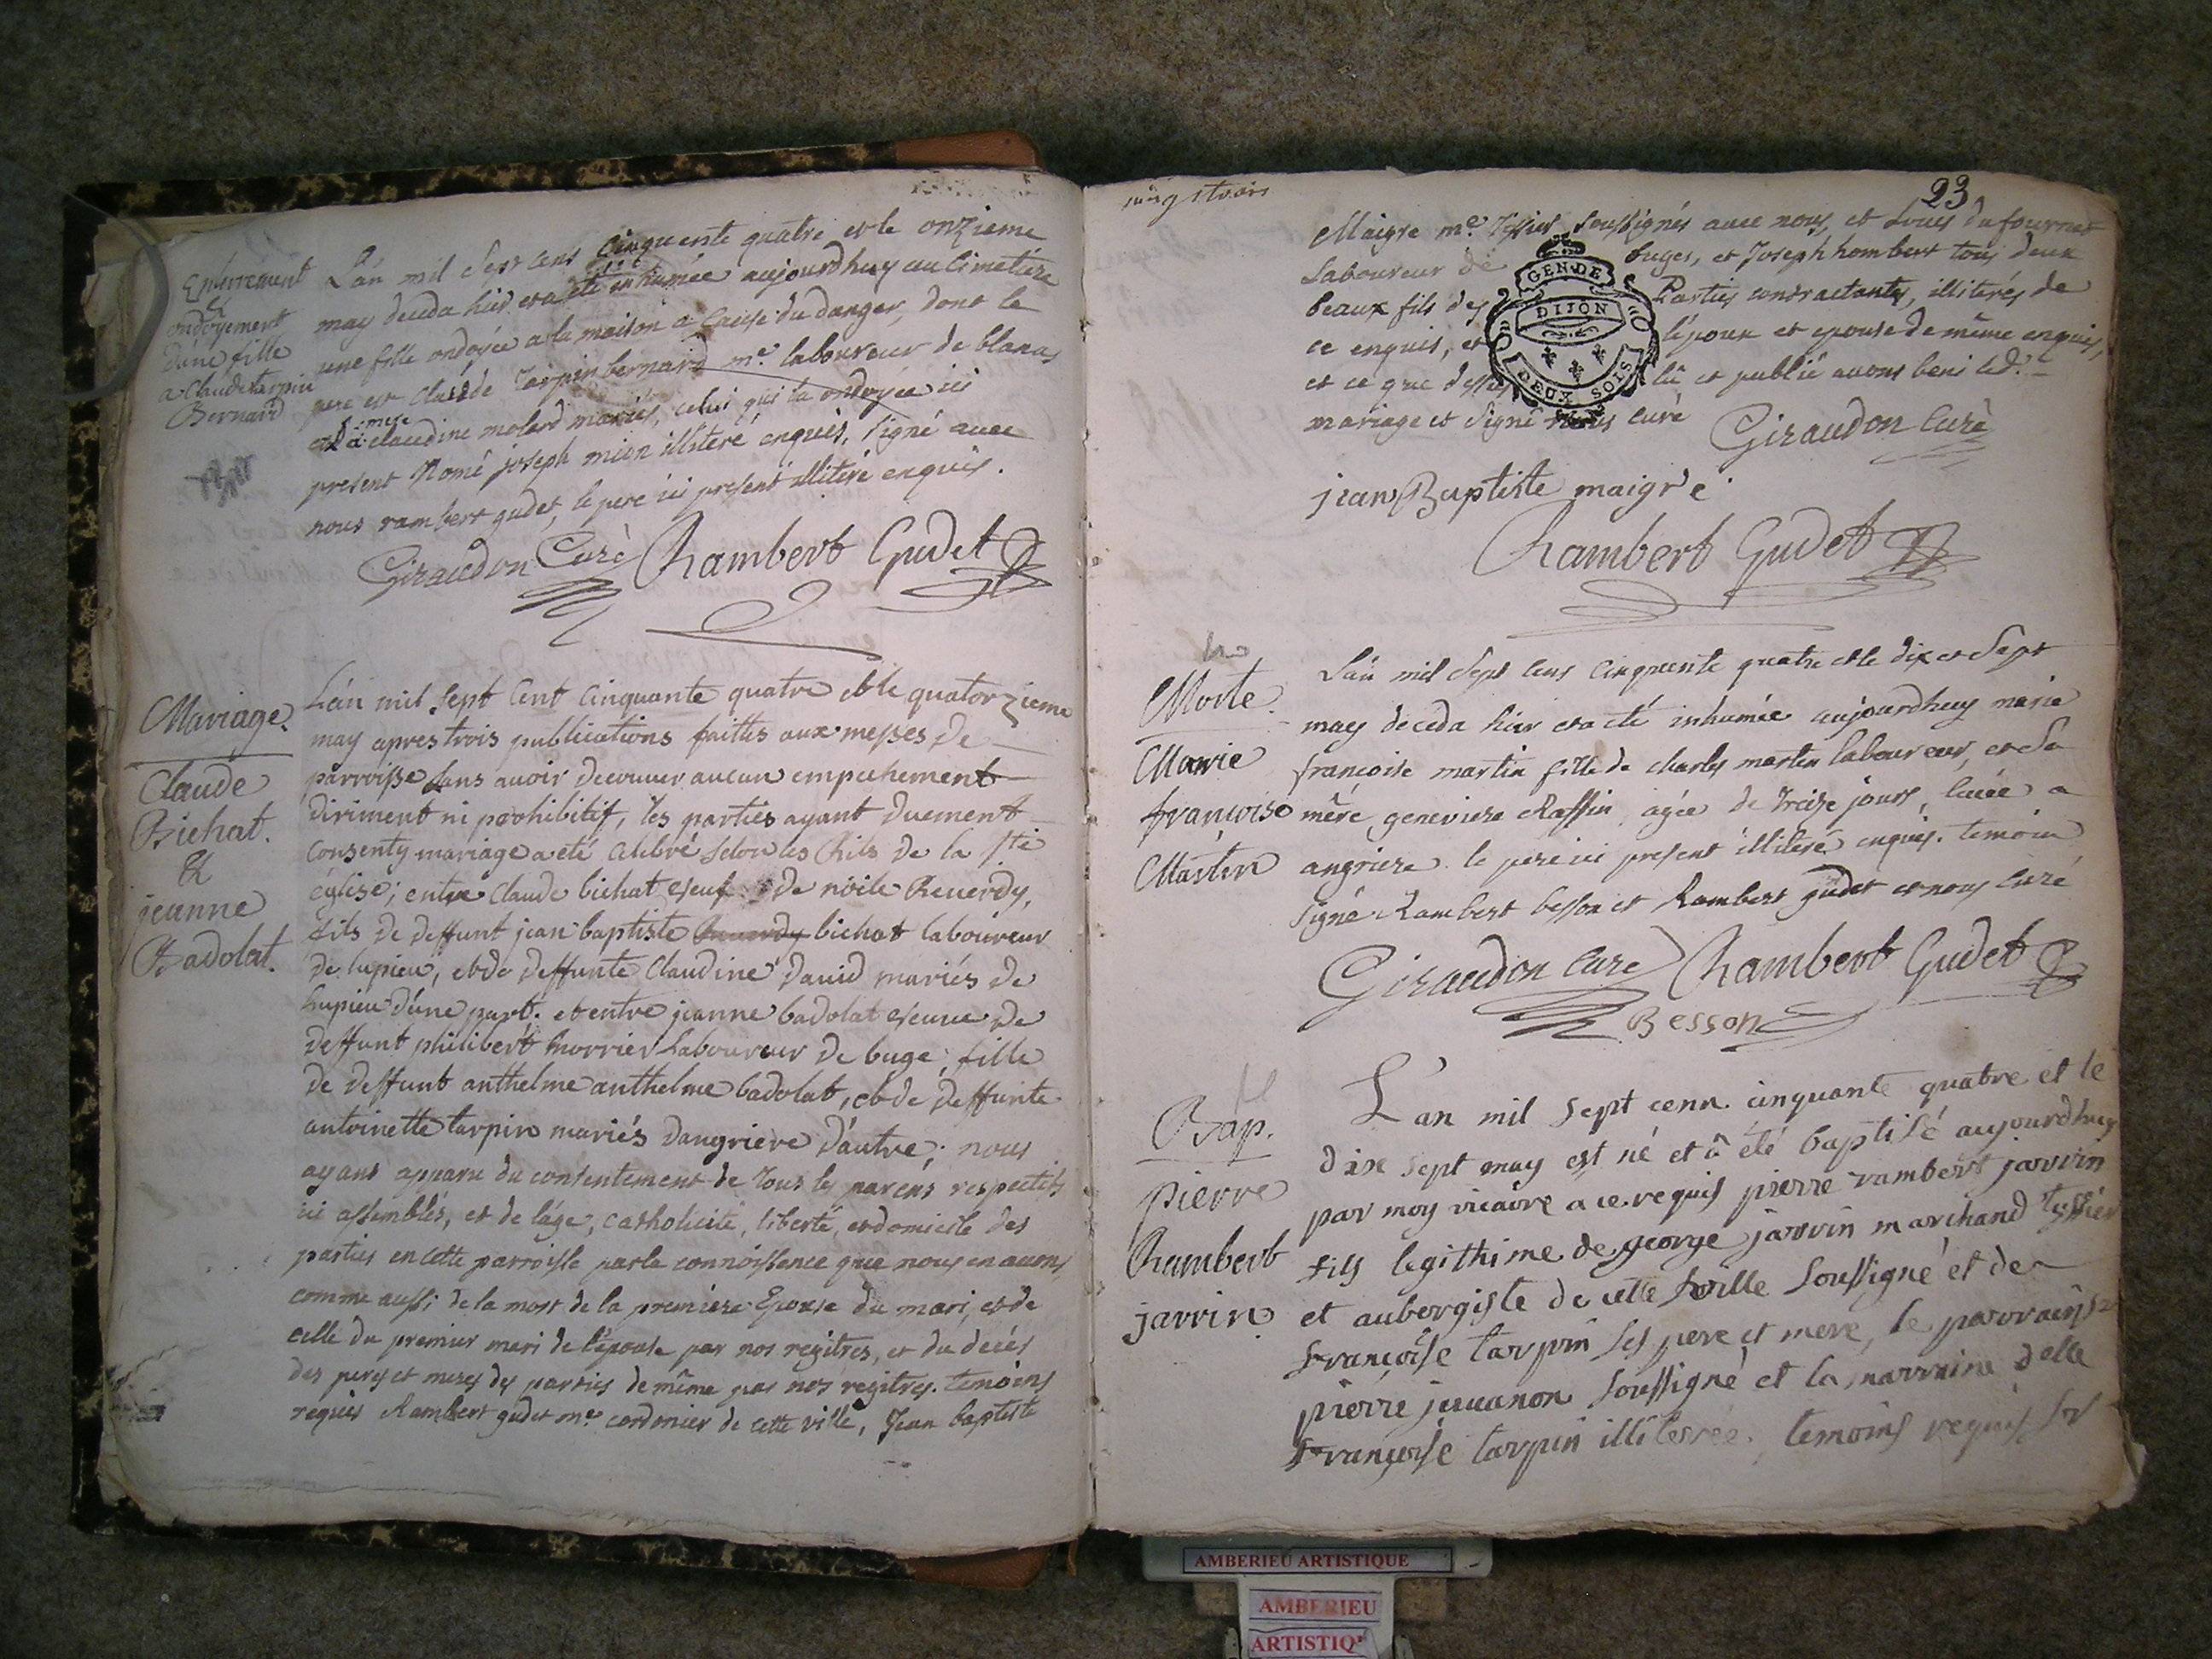 Enterrement
&
ondoyement
d'une fille
a Claude tarpin
Bernard
L'an mil sept cens cinquente quatre et le onzieme
may deceda hier et a été inhumée aujourdhuy au cimetiere
une fille ondoyée a la maison a cause du danger, dont le
pere est Claude Tarpin bernard me. laboureur de blanas
et la mere claudine molard mariés, celui qui la ondoyée ici
present Nomé joseph mion illiteré enquis, signé avec
nous rambert gudet, le pere ici present illiteré enquis.
Giraudon Curé Rambert Gudet
Mariage.
Claude
Bichat.
&
jeanne
Badolat.
L'an mil sept cent cinquante quatre et le quatorzieme
may apres trois publications faittes aux messes de
parroisse sans avoir decouver aucun empechement
diriment ni prohibitif, les parties ayant duement
consenty mariage a eté celebré selon les Rits de la ste
église; entre claude bichat veuf de Reverdy,
fils de deffunt jean baptiste bichat laboureur
de lupieu, et de deffunte Claudine david mariés de
lupieu d'une part. et entre jeanne badolat veuve de
deffunt philibert morrier Laboureur de buge; fille
de deffunt anthelme anthelme badolat, et de deffunte
antoinette tarpin mariés dangriere d'autre; nous
ayans apparu du contentement de Tous les parens respectifs
ici assemblés, et de l'age, catholicité, liberté, et domicile des
parties en cette parroisse par la connoissence que nous en avons,
comme aussi de la mort de la premiere Epouse du mari, et de
celle du premier mari de l'epouse par nos regitres, et du decés
des peres et meres des parties de même par nos regitres. temoins
requis Rambert gudet me. cordonier de cette ville, Jean baptiste
23
Maigre me. Tessier soussignés avec nous, et Louis dufournet
Laboureur de buges, et Joseph hombert tous deux
beaux fils des Parties contractantes, illiterés de
ce enquis, et l'epoux et epouse de même enquis,
et ce que dessus lû et publié avons beni led.
mariage et signé nous curé Giraudon Curé
GEN. DE
DIJON
DEUX SOLS
jean Baptiste maigre
Rambert Gudet
Morte.
Marie
françoise
Martin
L'an mil sept cens cinquente quatre et le dix et sept
may deceda hier et a eté inhumée aujourdhuy marie
françoise martin fille de charles martin laboureur, et sa
mére genevieve Raffin agée de Treize jours, levée a
angriere. le pere ici present illiteré enquis. temoins
signé Rambert besson et Rambert gudet et nous curé
Giraudon Curé Rambert Gudet
Besson
Bap.
pierre
Rambert
jarrin
L'an mil sept cens cinquante quatre et le
dix sept may est né et a été baptisé aujourdhuy
par moy vicaire a ce requis pierre rambert jarrin
fils legithime de george jarrin marchand tessier
et aubergiste de cette ville soussigné et de
françoise tarpin ses pere et mere, le parrain
pierre juvanon soussigné et la marraine delle
françoise tarpin illiterée. temoins requis
AMBERIEU ARTISTIQUE
AMBERIEU
ARTISTIQ